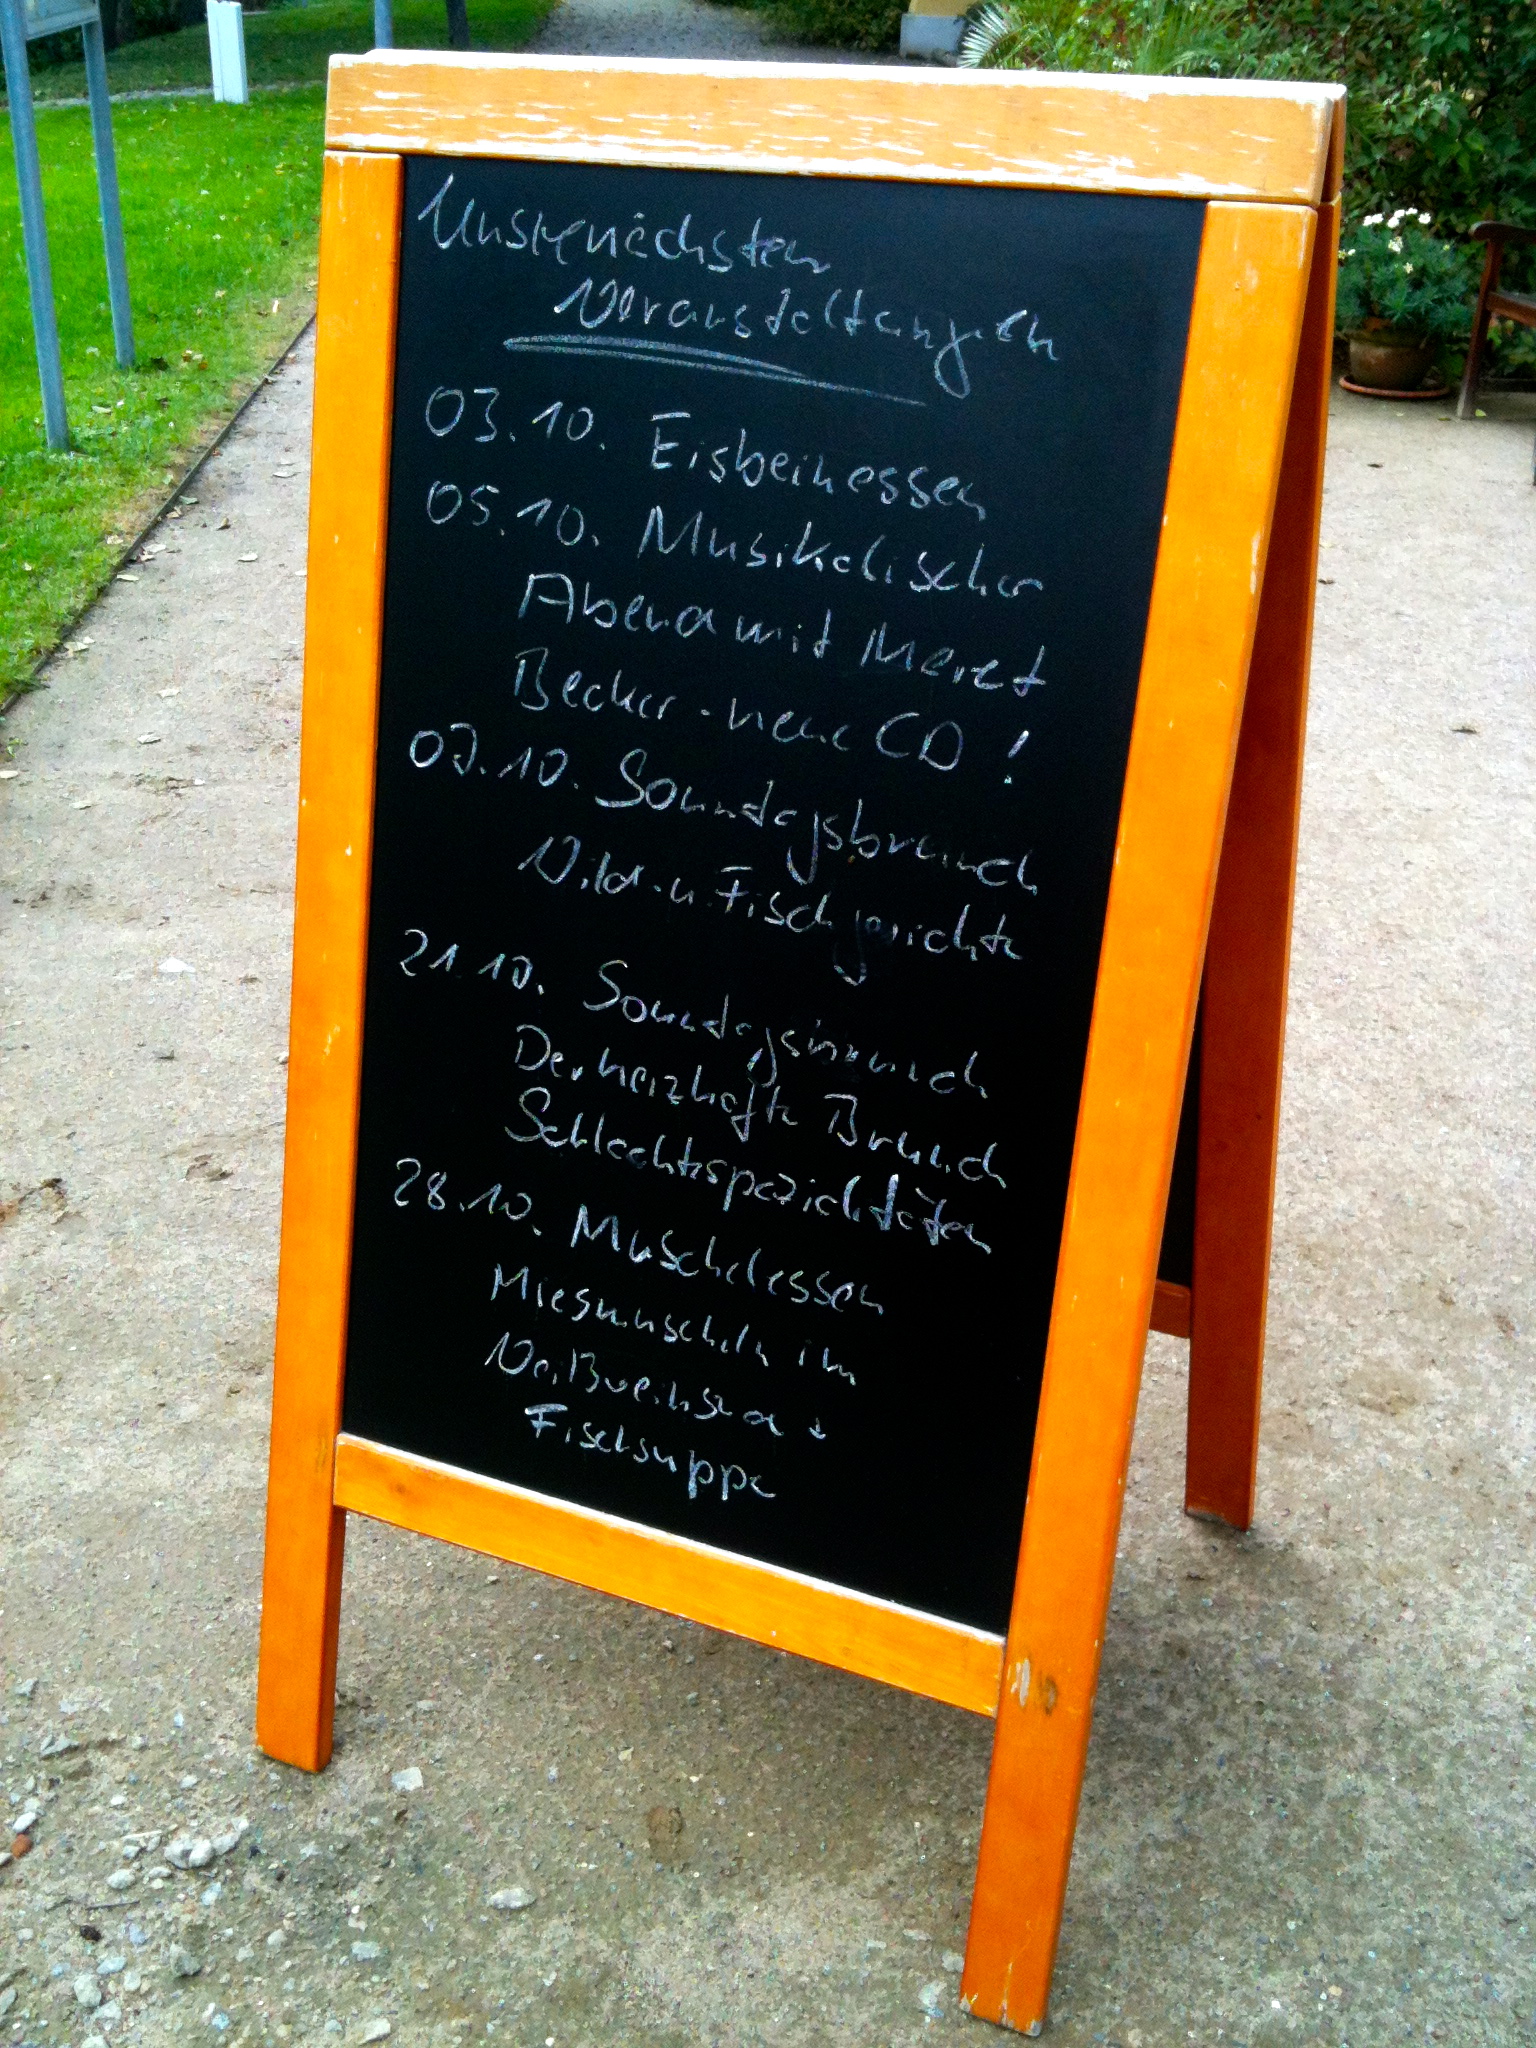 Unsre nächsten
Veranstaltungen
03.10. Eisbeinessen
05.10. Musikalischer
Abend mit Meret
Becker - neue CD!
07.10. Sonntagsbrunch
Wild- u. Fischgerichte
21.10. Sonntagsbrunch
Der herzhafte Brunch
Schlachtspezialitäten
28.10. Muschelessen
Miesmuscheln im
Weißweinsud +
Fischsuppe